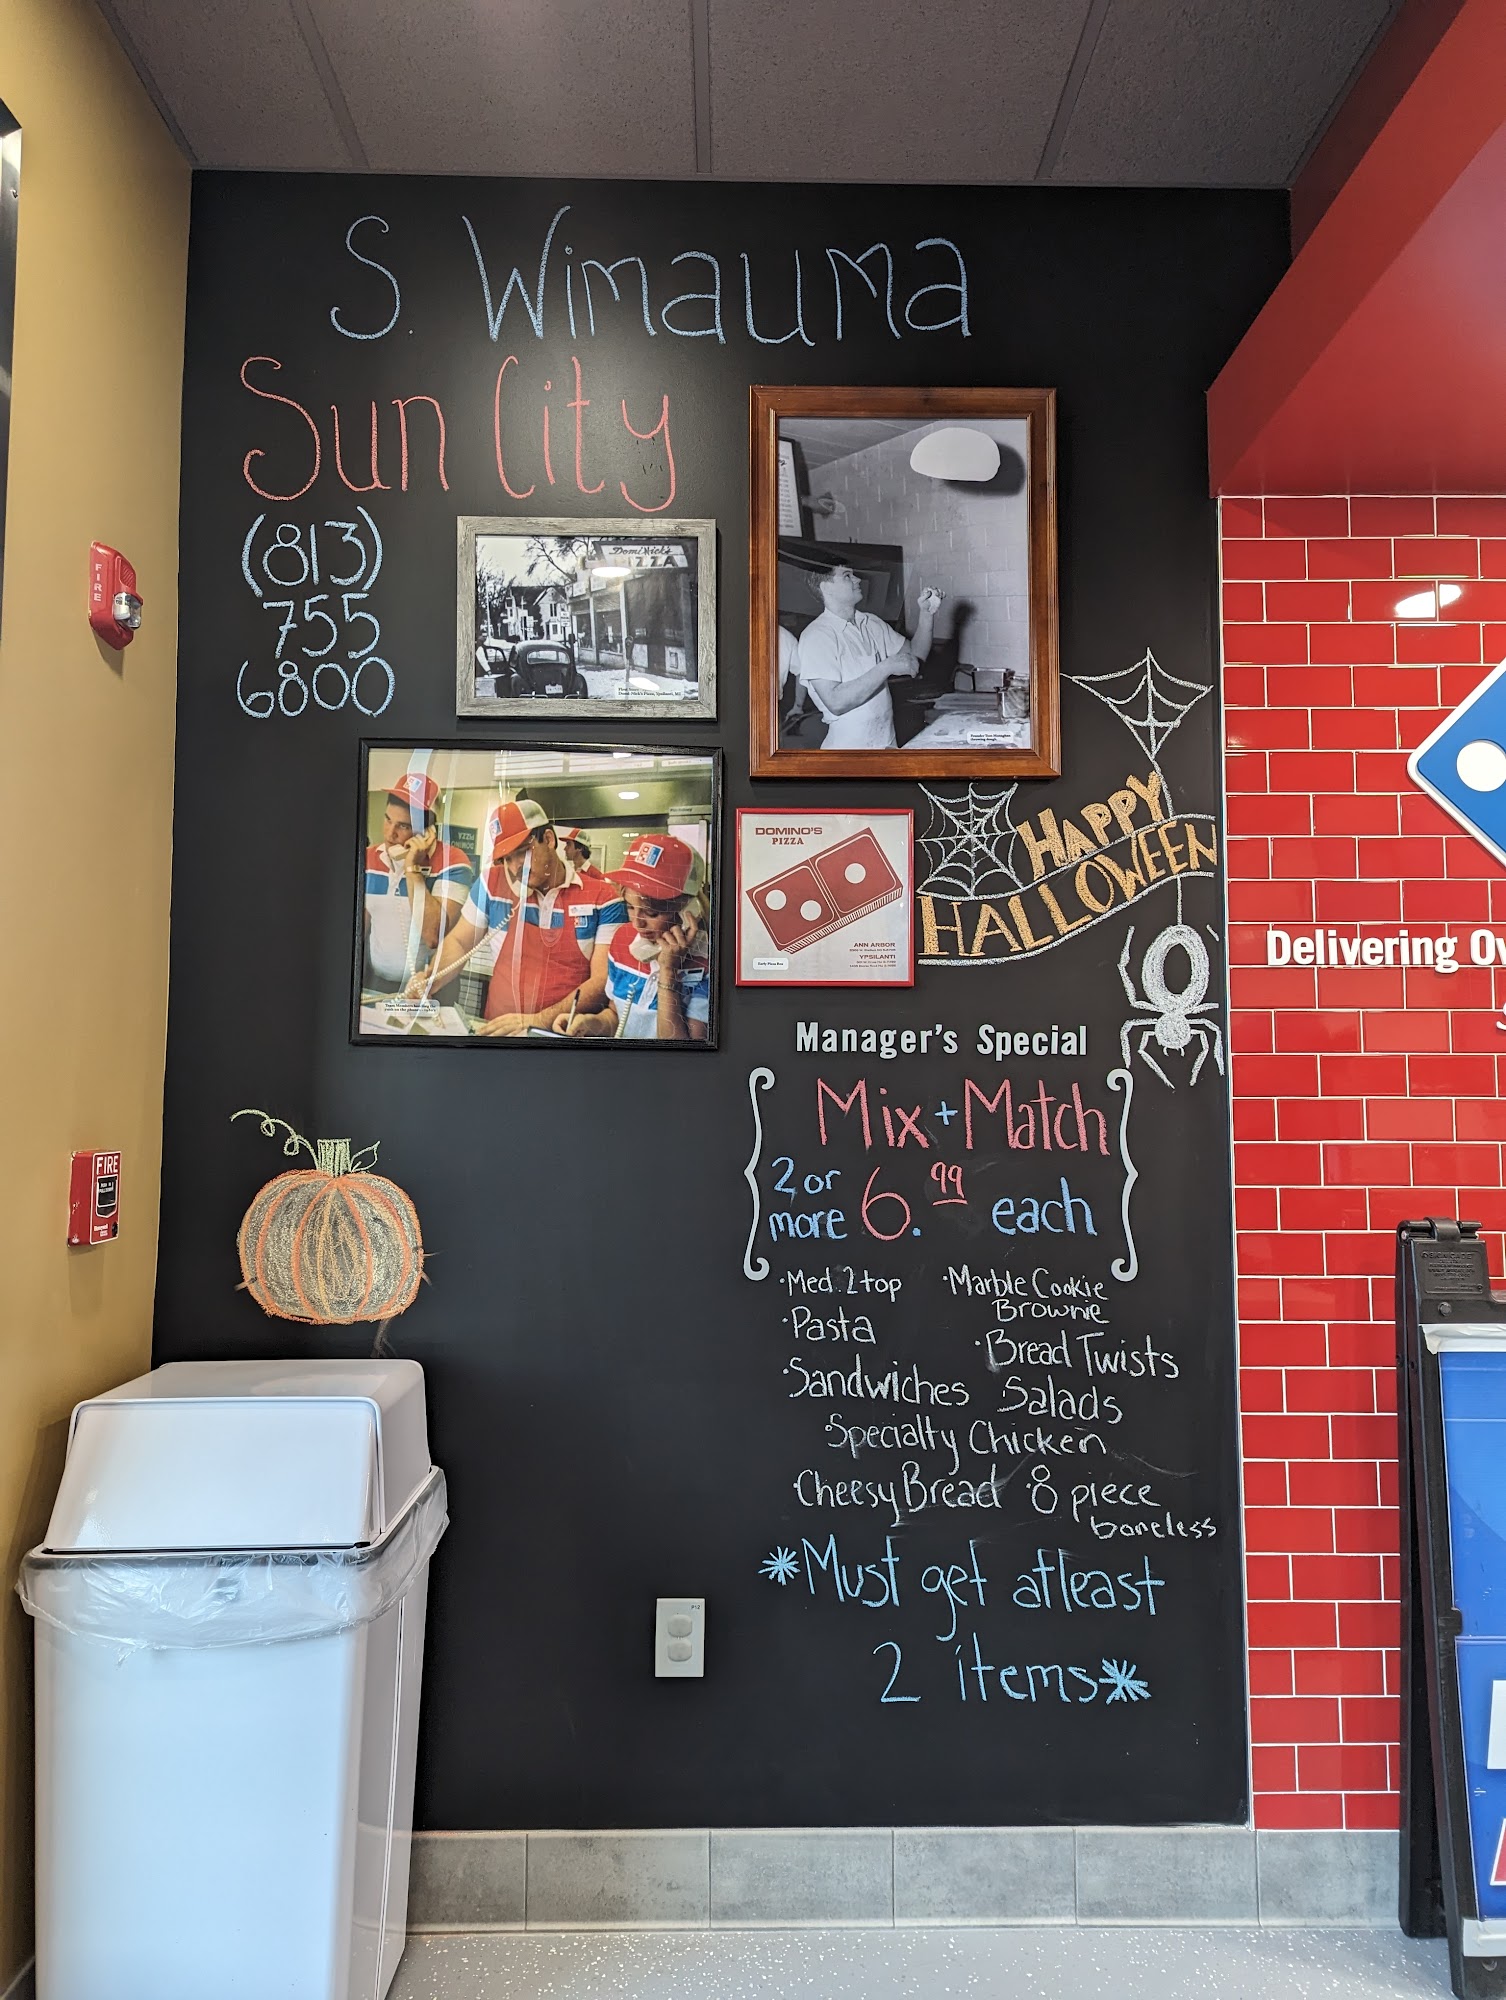 S. Wimauma
Sun City
(813)
755
6800
DomiNick's
PIZZA
FIRE
DOMINO'S
PIZZA
ANN ARBOR
YPSILANTI
Early Pizza Box
Founder Tom Monaghan
throwing dough.
HAPPY
HALLOWEEN
Delivering
Manager's Special
Mix + Match
2 or
more 6.99 each
·Med. 2 top
·Marble Cookie
Brownie
·Pasta
·Bread Twists
·Sandwiches
Salads
·Specialty Chicken
·Cheesy Bread
·8 piece
boneless
*Must get atleast
2 items*
FIRE